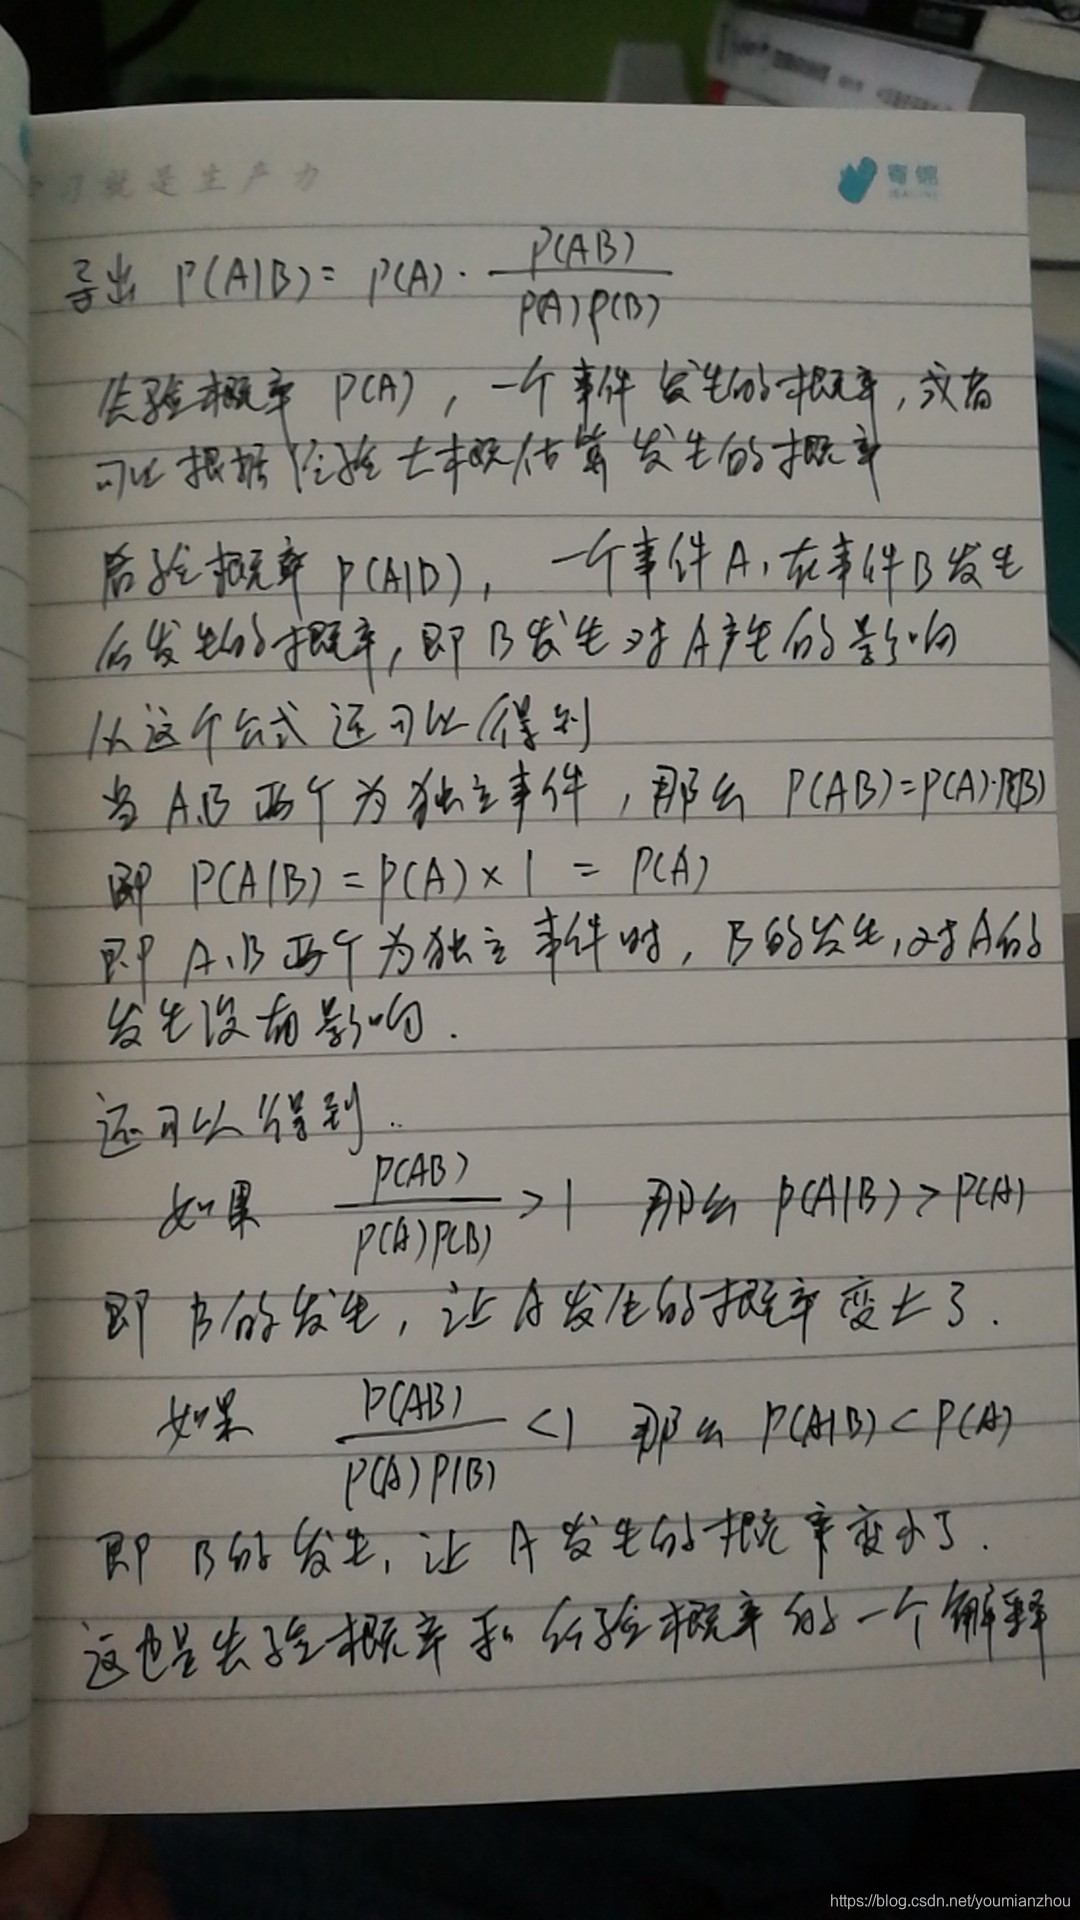 学习就是生产力
导出 P(A|B) = P(A) · P(AB) / P(A)P(B)
先验概率 P(A)，一个事件发生的概率，或者
可以根据经验大概估算发生的概率
后验概率 P(A|B)，一个事件A，在事件B发生
后发生的概率，即B发生对A产生的影响
从这个公式还可以得到
当A、B两个为独立事件，那么 P(AB)=P(A)·P(B)
即 P(A|B) = P(A) × 1 = P(A)
即A、B两个为独立事件时，B的发生，对A的
发生没有影响．
还可以得到．
如果 P(AB) / P(A)P(B) > 1 那么 P(A|B) > P(A)
即B的发生，让A发生的概率变大了．
如果 P(AB) / P(A)P(B) < 1 那么 P(A|B) < P(A)
即B的发生，让A发生的概率变小了．
这也是先验概率和后验概率的一个解释
https://blog.csdn.net/youmianzhou